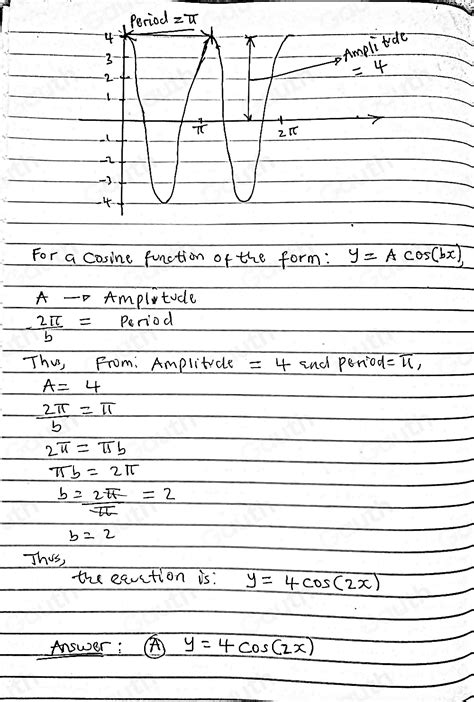 Period = π
4
3
2
1
Amplitude
= 4
π
2π
-1
-2
-3
-4
For a cosine function of the form: y = A cos(bx),
A → Amplitude
2π/b = Period
Thus, From: Amplitude = 4 and period = π,
A = 4
2π/b = π
2π = πb
πb = 2π
b = 2π/π = 2
b = 2
Thus,
the equation is: y = 4 cos(2x)
Answer: (A) y = 4 cos(2x)